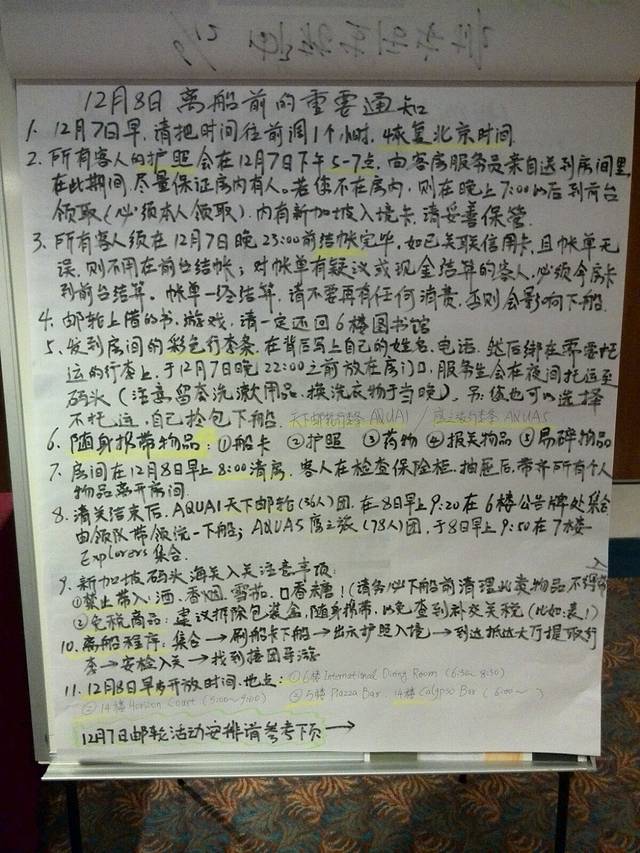 12月8日 离船前的重要通知
1. 12月7日早，请把时间往前调1个小时，恢复北京时间
2. 所有客人的护照会在12月7日下午5-7点，由客房服务员亲自送到房间里
在此期间，尽量保证房内有人。若您不在房内，则在晚上7:00以后到前台
领取（必须本人领取），内有新加坡入境卡，请妥善保管
3. 所有客人须在12月7日晚23:00前结帐完毕，如已关联信用卡，且帐单无
误，则不用在前台结帐；对帐单有疑议或现金结算的客人，必须今房卡
到前台结算。帐单一经结算，请不要再有任何消费，否则会影响下船
4. 邮轮上借的书、游戏，请一定还回6楼图书馆
5. 发到房间的彩色行李条，在背后写上自己的姓名、电话，然后绑在需要托
运的行李上，于12月7日晚22:00之前放在房门口，服务生会在夜间托运至
码头（注意，留套洗漱用品、换洗衣物于当晚），另：您也可以选择
不托运，自己拎包下船。天下邮轮行李条 AQUA1 / 之旅行李条 AQUA5
6. 随身携带物品：①船卡 ②护照 ③药物 ④报关物品 ⑤易碎物品
7. 房间在12月8日早上8:00清房，客人在检查保险柜、抽屉后，带齐所有个人
物品离开房间
8. 清关结束后，AQUA1天下邮轮（36人）团，在8日早上9:20在6楼公告牌处集合
由领队带领统一下船；AQUA5之旅（78人）团，于8日早上9:50在7楼
Explorers集合
9. 新加坡码头海关入关注意事项：
①禁止带入：酒、香烟、雪茄、口香糖！（请务必下船前清理此类物品不得带入
②免税商品：建议拆除包装盒，随身携带，以免查到补交关税（比如：表！）
10. 离船程序：集合→刷船卡下船→出示护照入境→到达抵达大厅提取行
李→安检入关→找到接团导游
11. 12月8日早开放时间、地点：①6楼International Dining Room（6:30~8:30）
②14楼Horizon Court（5:00~9:00） ③5楼Piazza Bar 14楼Calypso Bar（6:00~ ）
12月7日邮轮活动安排请参考下页→